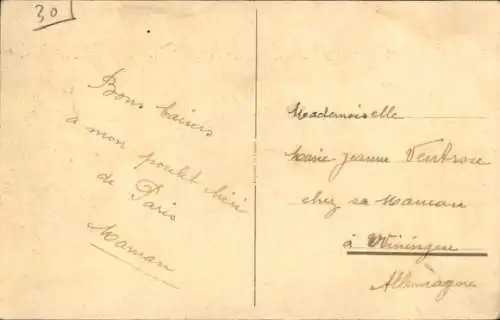 30
Bons baisers
à mon poulet chéri
de Paris
Maman
Mademoiselle
Marie Jeanne Ventrou
chez sa Maman
à Winingen
Allemagne